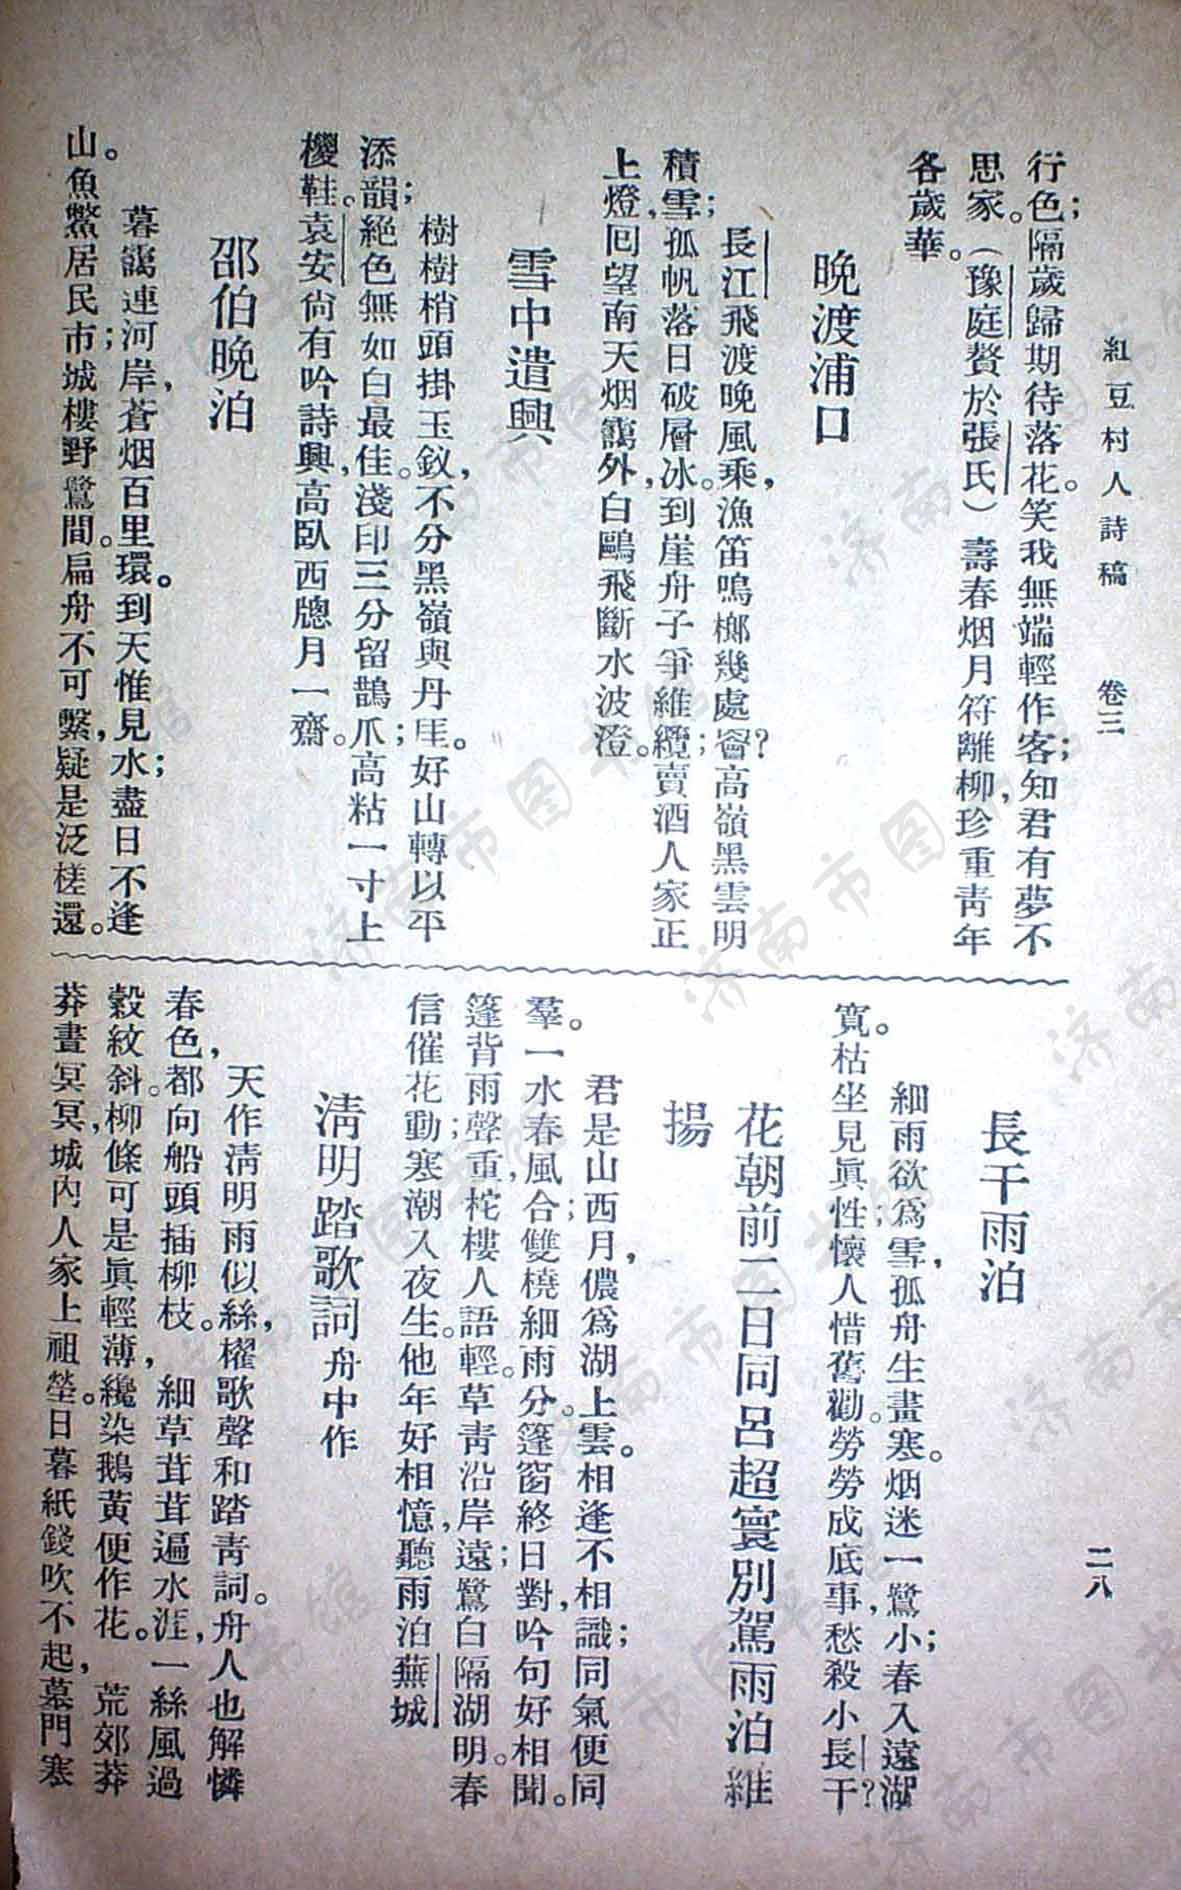 紅豆村人詩稿　卷三　二八
行色；隔歲歸期待落花。笑我無端輕作客；知君有夢不
思家。（豫庭贅於張氏）壽春烟月符離柳，珍重青年
各歲華。
晚渡浦口
長江飛渡晚風乘，漁笛鳴榔幾處罾？高嶺黑雲明
積雪；孤帆落日破層冰。到崖舟子爭維纜；賣酒人家正
上燈，回望南天烟靄外，白鷗飛斷水波澄。
雪中遣興
樹樹梢頭掛玉釵，不分黑嶺與丹厓。好山轉以平
添韻；絕色無如白最佳。淺印三分留鵲爪；高粘一寸上
椶鞋。袁安尙有吟詩興，高臥西牕月一齋。
邵伯晚泊
暮靄連河岸，蒼烟百里環。到天惟見水；盡日不逢
山。魚鱉居民市；城樓野鷺間。扁舟不可繫，疑是泛槎還。
長干雨泊
細雨欲爲雪，孤舟生晝寒。烟迷一鷺小；春入遠湖
寬。枯坐見眞性；懷人惜舊勸。勞勞成底事，愁殺小長干？
花朝前二日同呂超寰別駕雨泊維
揚
君是山西月，儂爲湖上雲。相逢不相識；同氣便同
羣。一水春風合；雙橈細雨分。篷窗終日對，吟句好相聞。
篷背雨聲重；柁樓人語輕。草青沿岸遠；鷺白隔湖明。春
信催花動，寒潮入夜生。他年好相憶，聽雨泊蕪城
清明踏歌詞舟中作
天作清明雨似絲，櫂歌聲和踏青詞。舟人也解憐
春色，都向船頭插柳枝。　細草茸茸遍水涯，一絲風過
縠紋斜。柳條可是眞輕薄，纔染鵝黃便作花。　荒郊莽
莽晝冥冥，城內人家上祖塋。日暮紙錢吹不起，墓門寒